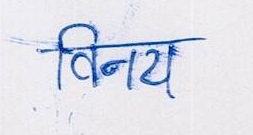 विनय